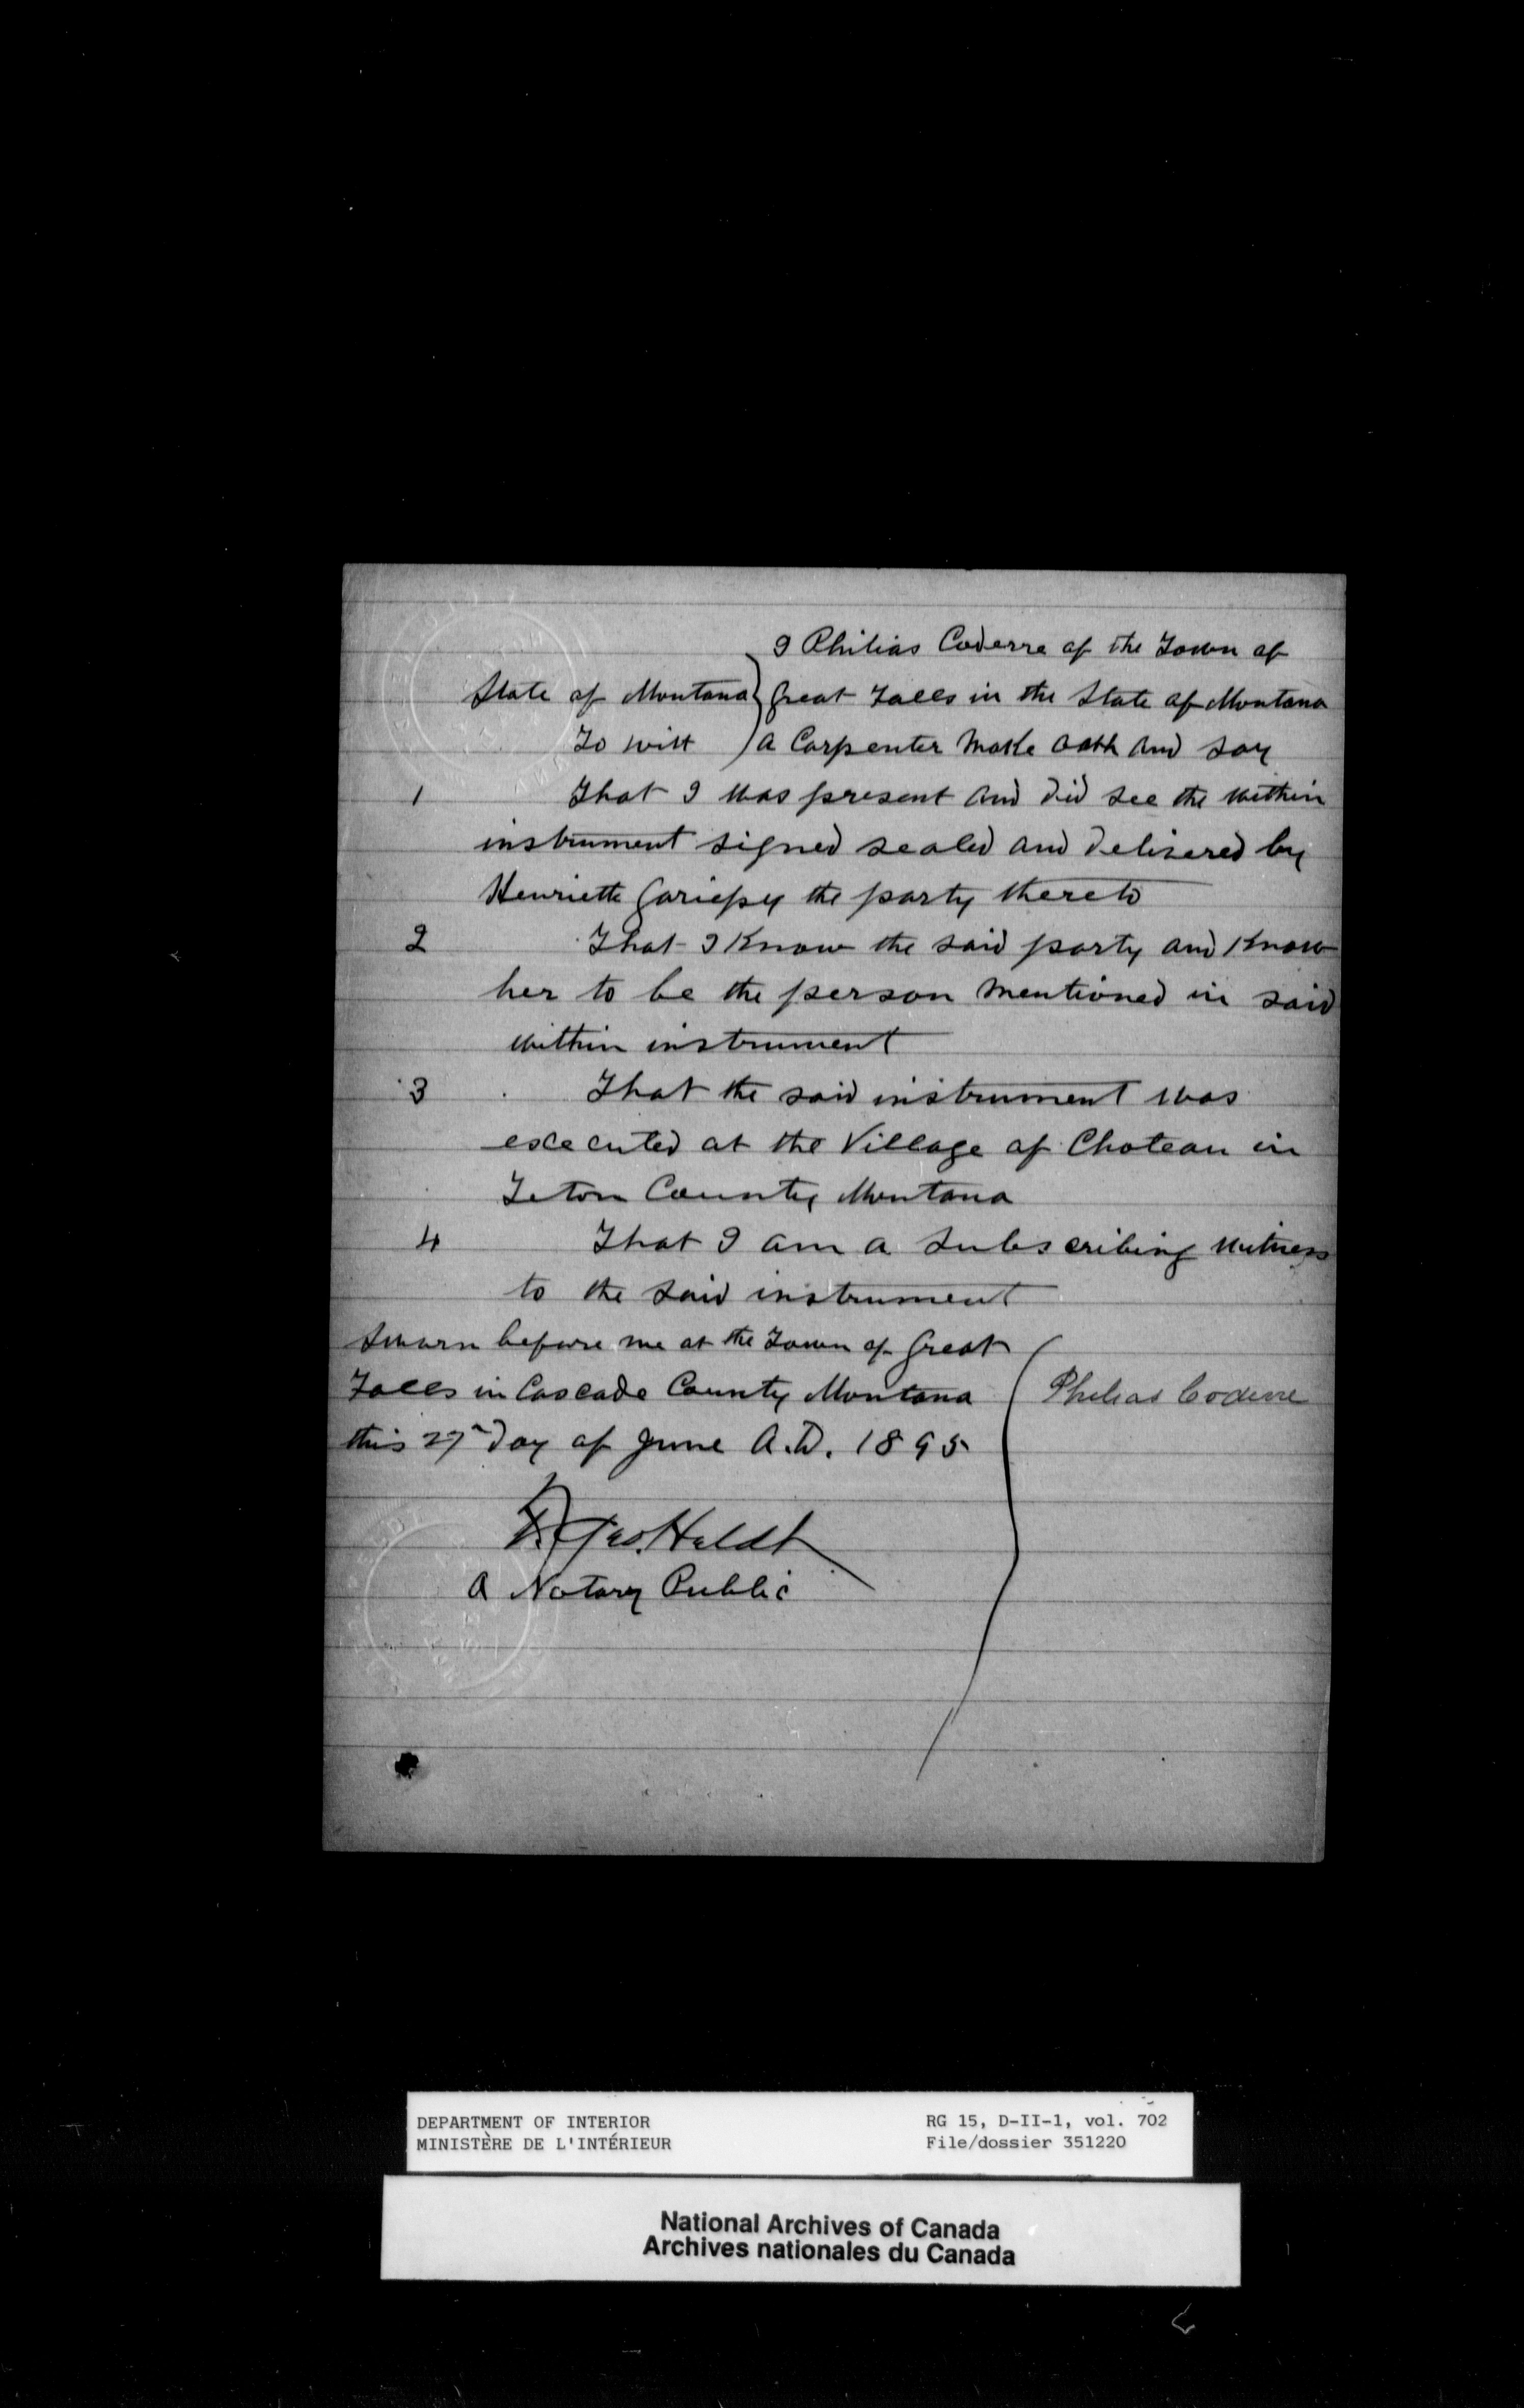 I Philias Coderre of the Town of
State of Montana } Great Falls in the State of Montana
To witt ) a Carpenter Make oath and say
1 That I was present and did see the within
instrument signed sealed and delivered by
Henriette Gariepy the party thereto
2 That I Know the said party and Know
her to be the person mentioned in said
within instrument
3 That the said instrument was
executed at the Village of Choteau in
Teton County Montana
4 That I am a Subscribing Witness
to the said instrument
Sworn before me at the Town of Great
Falls in Cascade County Montana
this 27th day of June A.D. 1895
Philias Coderre
Geo. Heldt
a Notary Public
DEPARTMENT OF INTERIOR
MINISTÈRE DE L'INTÉRIEUR
RG 15, D-II-1, vol. 702
File/dossier 351220
National Archives of Canada
Archives nationales du Canada